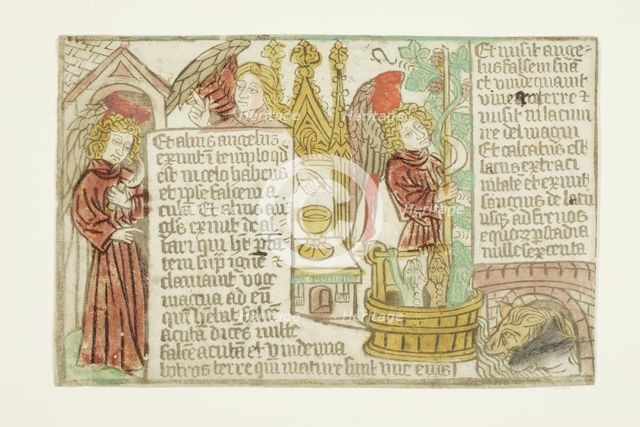 Et alius angelus
exivit d templo qd
est in celo habens
et ipse falcem a
cutā Et alius an
gelus exivit de al
tari qui ht ptā
tem supr ignē et
clamavit voce
magna ad eū
qui hebat falcē
acutā dicēs mitte
falcē acutā et vindemia
botros terre qui mature sunt vue eius
Et misit ange-
lus falcem suā
et vindemiavit
vineā terre et
misit in lacum
ire dei magni
Et calcatus est
lacus extra ci
vitatē et exivit
sanguis de lacu
usqz ad frenos
equorz p stadia
mille sexcenta
Heritage
Heritage
Heritage
Heritage